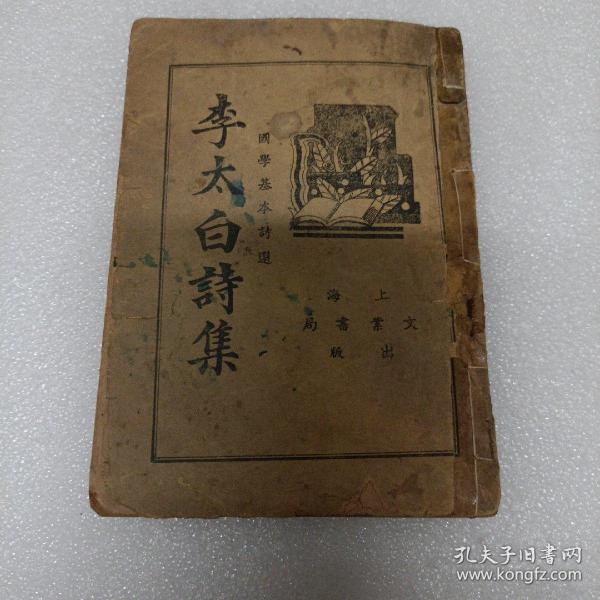 李太白詩集
國學基本詩選
上海
文業書局
出版
孔夫子旧書网
www.kongfz.com